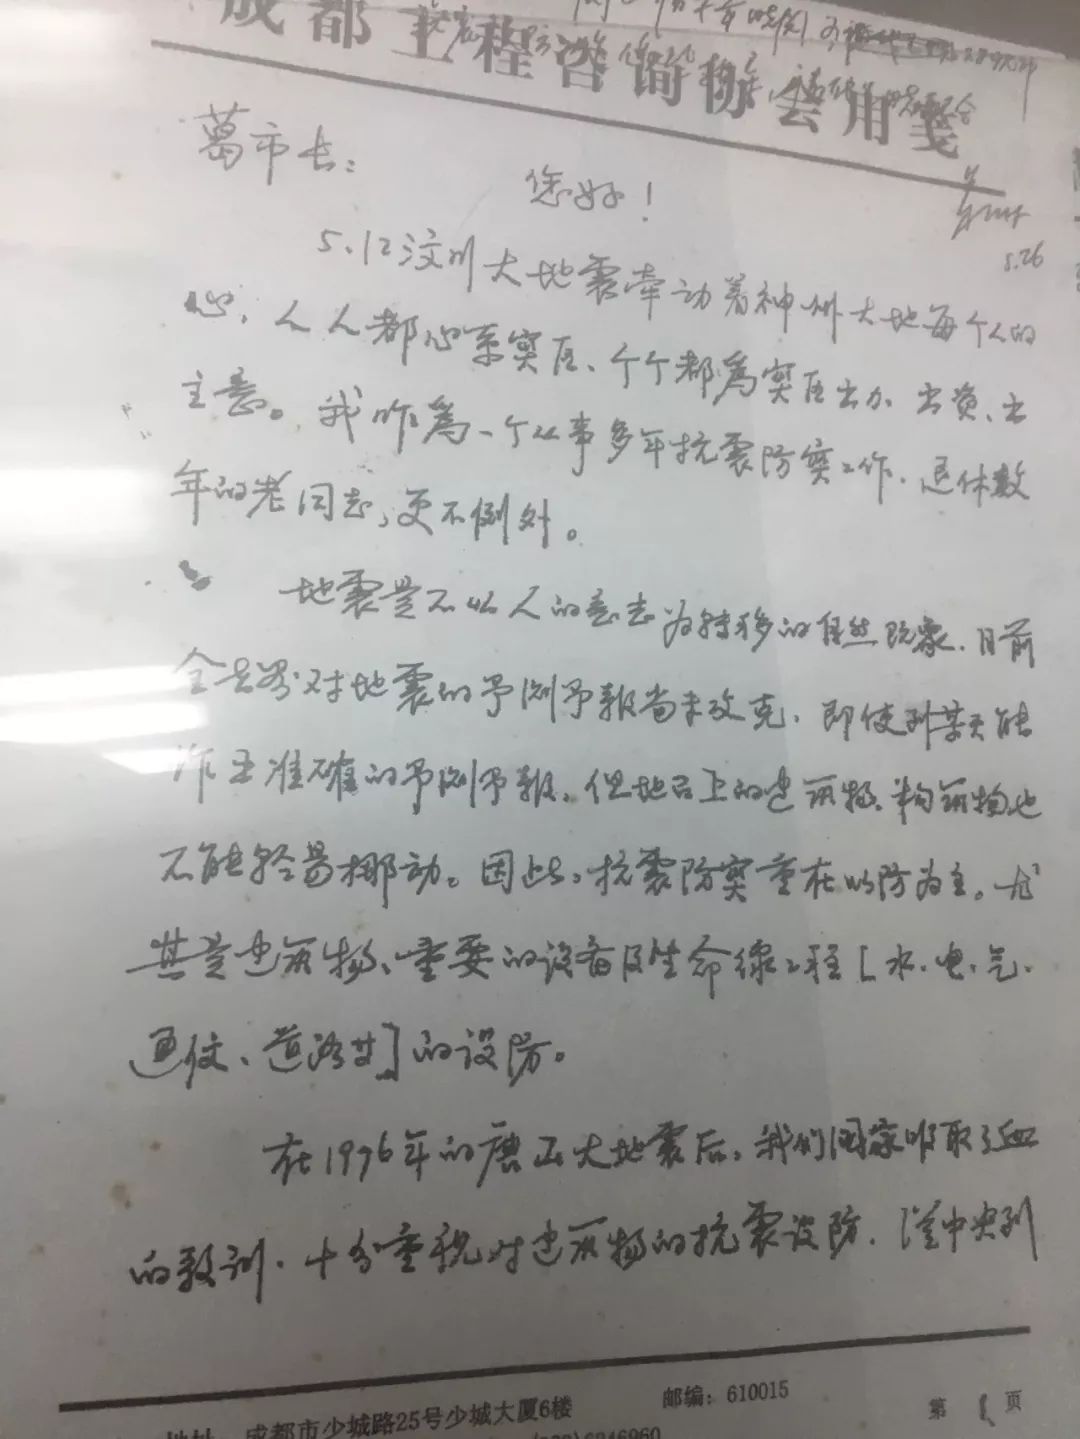 成都工程咨询协会用笺
5.26
葛市长:
您好!
5.12汶川大地震牵动着神州大地每个人的
心,人人都心系灾区、个个都为灾区出力、出资、出
主意。我作为一个从事多年抗震防灾工作、退休数
年的老同志,更不例外。
地震是不以人的意志为转移的自然现象,目前
全世界对地震的予测予报尚未攻克,即使到某天能
作出准确的予测予报,但地面上的建筑物、构筑物也
不能轻易挪动。因此,抗震防灾重在以防为主。尤
其是建筑物、重要的设备及生命线工程[水、电、气、
通信、道路等]的设防。
在1976年的唐山大地震后,我们国家吸取了血
的教训,十分重视对建筑物的抗震设防,从中央到
地址 成都市少城路25号少城大厦6楼
邮编:610015
第1页